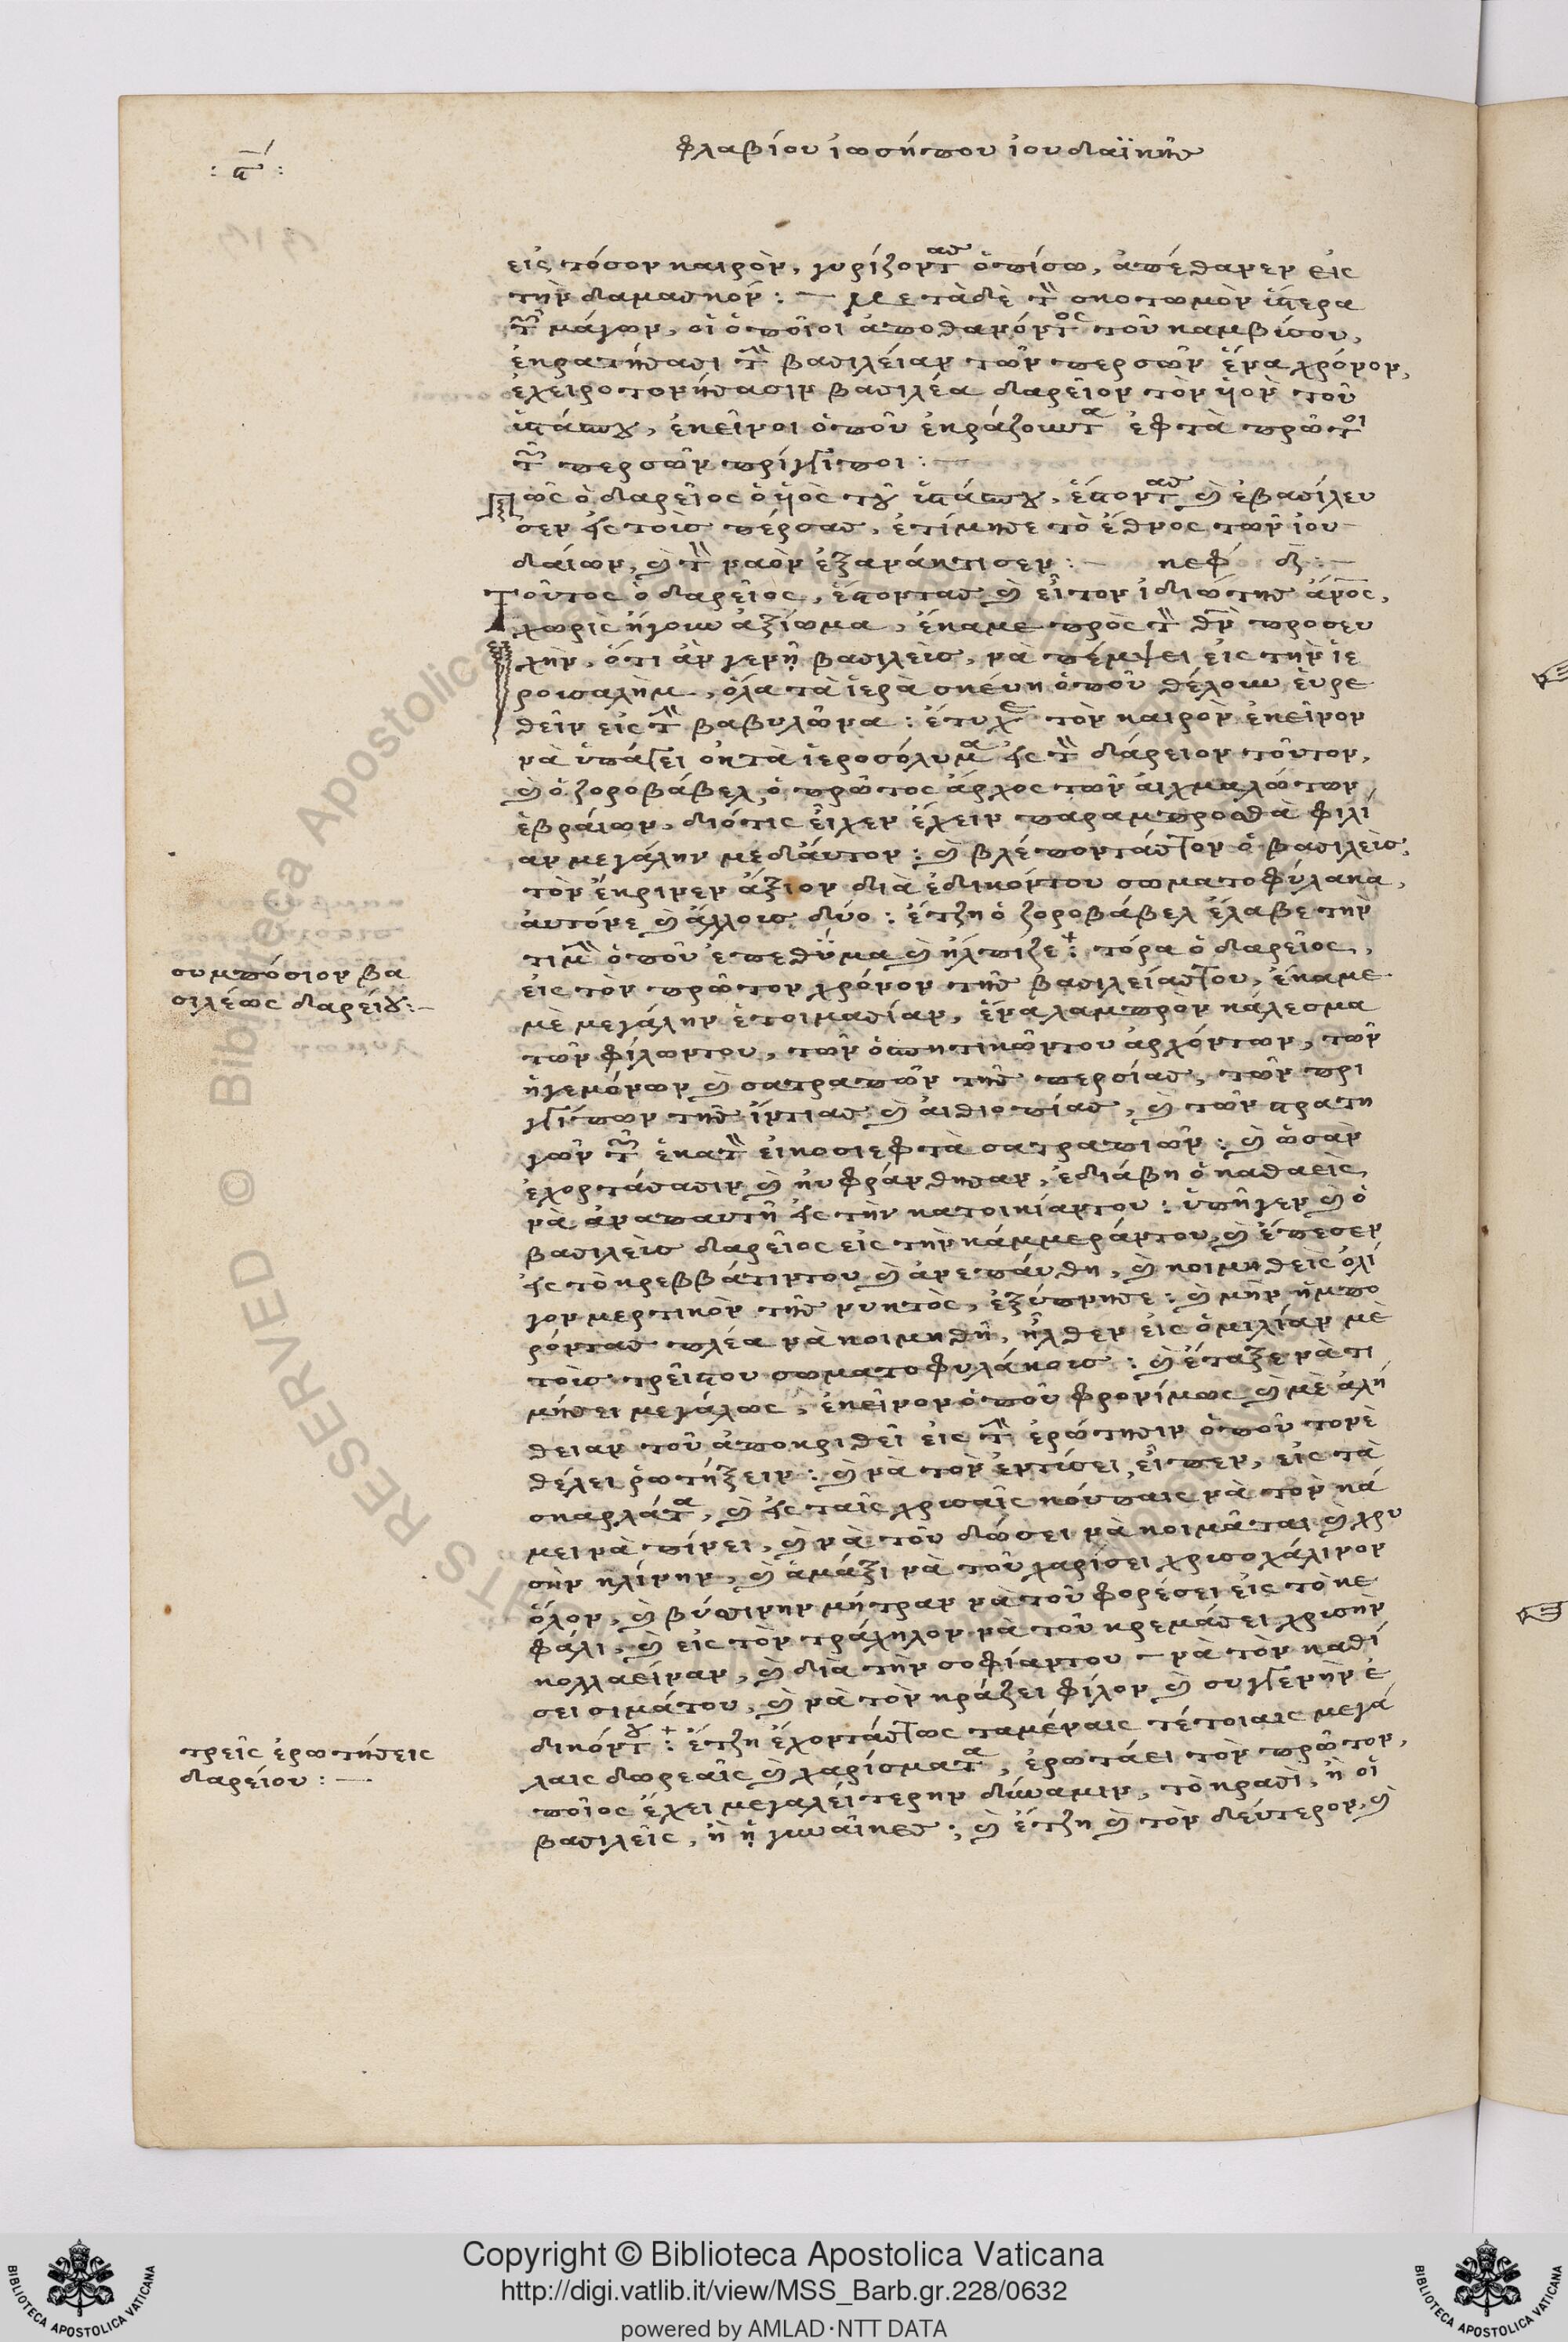 φλαβίου ἰωσήπου ἰουδαϊκῆς
εἰς τόσον καιρὸν, γυρίζοντας ὀπίσω, ἀπέθανεν εἰς
τὴν δαμασκόν: — Μετὰ δὲ τὸν σκοτωμὸν ὕστερα
τῶν μάγων, οἱ ὁποῖοι ἀποθανόντος τοῦ καμβύσου,
ἐκρατήσασι τὴν βασιλείαν τῶν περσῶν ἕνα χρόνον,
ἐχειροτονήσασιν βασιλέα δαρεῖον τὸν ὑὸν τοῦ
ὑστάσπου, ἐκεῖνοι ὁποῦ ἐκράζουντα ἐφτὰ πρῶτοι
τῶν περσῶν πρίγγιποι: —
Πῶς ὁ δαρεῖος ὁ ὑὸς τοῦ ὑστάσπου, ἔστοντας καὶ ἐβασίλευ
σεν εἰς τοὺς πέρσας, ἐτίμησε τὸ ἔθνος τῶν ἰου
δαίων, καὶ τὸν ναὸν ἐξανάκτισεν: — κεφ δ: —
Τοῦτος ὁ δαρεῖος, ἔστοντας καὶ εἶτον ἰδιώτης ἄνος,
χωρὶς ἤγουν ἀξίωμα, ἔκαμε πρὸς τὸν θν προσευ
χὴν, ὅτι ἂν γενῇ βασιλεὺς, νὰ πέμψει εἰς τὴν ἱε
ρουσαλὴμ, ὅλα τὰ ἱερὰ σκέυη ὁποῦ θέλουν ἑυρε
θεῖν εἰς τὴν βαβυλῶνα: ἔτυχε τὸν καιρὸν ἐκεῖνον
νὰ ὑπάγει ὀκ τὰ ἱεροσόλυμα εἰς τὸν δάρειον τοῦτον,
καὶ ὁ ζοροβάβελ, ὁ πρῶτος ἄρχος τῶν ἀιχμαλώτων
ἑβραίων, διότις εἶχεν ἔχειν παραμπροσθὰ φιλί
αν μεγάλην μεδάυτον: καὶ βλέποντάς τον ὁ βασιλεὺς,
τὸν ἔκρινεν ἄξιον διὰ ἐδικόντου σωματοφύλακα,
ἀυτόνε καὶ ἄλλους δύο: ἔτζη ὁ ζοροβάβελ ἔλαβε τὴν
τιμὴν ὁποῦ ἐπεθύμα καὶ ἤλπιζε: τόρα ὁ δαρεῖος,
συμπόσιον βα
σιλέως δαρείου: —
εἰς τὸν πρῶτον χρόνον τῆς βασιλείας του, ἔκαμε
μὲ μεγάλην ἑτοιμασίαν, ἕνα λαμπρὸν κάλεσμα
τῶν φίλωντου, τῶν ὁσπητικῶντου ἀρχόντων, τῶν
ἡγεμόνων καὶ σατραπῶν τῆς περσίας, τῶν πρι
γγίπων τῆς ἴντιας καὶ ἀιθιοπίας, καὶ τῶν στρατη
γῶν τῶν ἑκατὸν εἰκοσιεφτὰ σατραπιῶν: καὶ ὡσὰν
ἐχορτάσασιν καὶ ηὐφράνθησαν, ἐδιάβη ὁ καθαεὶς
νὰ ἀναπαυτῆ εἰς τὴν κατοικίαντου: ὑπῆγεν καὶ ὁ
βασιλεὺς δαρεῖος εἰς τὴν κάμμεράντου, καὶ ἔπεσεν
εἰς τὸ κρεββάτιντου καὶ ἀνεπάυθη, καὶ κοιμηθεὶς ὀλί
γον μερτικὸν τῆς νυκτὸς, ἐξύπνησε: καὶ μὴν ἠμπο
ρόντας πλέα νὰ κοιμηθῆ, ἦλθεν εἰς ὁμιλίαν μὲ
τοὺς τρεῖς του σωματοφυλάκους: καὶ ἔταξε νὰ τι
μήσει μεγάλως, ἐκεῖνον ὁποῦ φρονίμως καὶ μὲ ἀλή
θειαν τοῦ ἀποκριθεῖ εἰς τὴν ἐρώτησιν ὁποῦ τονὲ
θέλει ῥωτήξειν: καὶ νὰ τὸν ἐντύσει, εἶπεν, εἰς τὰ
σκαρλάτα, καὶ εἰς ταῖς χρυσαῖς κούπαις νὰ τὸν κά
μει νὰ πίνει, καὶ νὰ τοῦ δώσει νὰ κοιμᾶται καὶ χρυ
σὴν κλίνην, καὶ ἁμάξι νὰ τοῦ χαρίσει χρυσοχάλινον
ὅλον, καὶ βύσσινην μήτραν νὰ τοῦ φορέσει εἰς τὸ κε
φάλι, καὶ εἰς τὸν τράχηλον νὰ τοῦ κρεμάσει χρυσὴν
κολλαείναν, καὶ διὰ τὴν σοφίαντου — νὰ τὸν καθί
σει σιμάτου, καὶ νὰ τὸν κράξει φίλον καὶ συγγενὴν ἐ
δικόντου: ἔτζη ἔχοντάς τως ταμέναις τέτοιαις μεγά
τρεῖς ἐρωτήσεις
δαρείου: —
λαις δωρεαῖς καὶ χαρίσματα, ἐρωτάει τὸν πρῶτον,
ποῖος ἔχει μεγαλείτερην δύναμιν, τὸ κρασὶ, ἢ οἱ
βασιλεῖς, ἢ ᾑ γυναῖκες; καὶ ἔτζη καὶ τὸν δεύτερον, καὶ
Copyright © Biblioteca Apostolica Vaticana
http://digi.vatlib.it/view/MSS_Barb.gr.228/0632
powered by AMLAD·NTT DATA
BIBLIOTECA APOSTOLICA VATICANA
BIBLIOTECA APOSTOLICA VATICANA